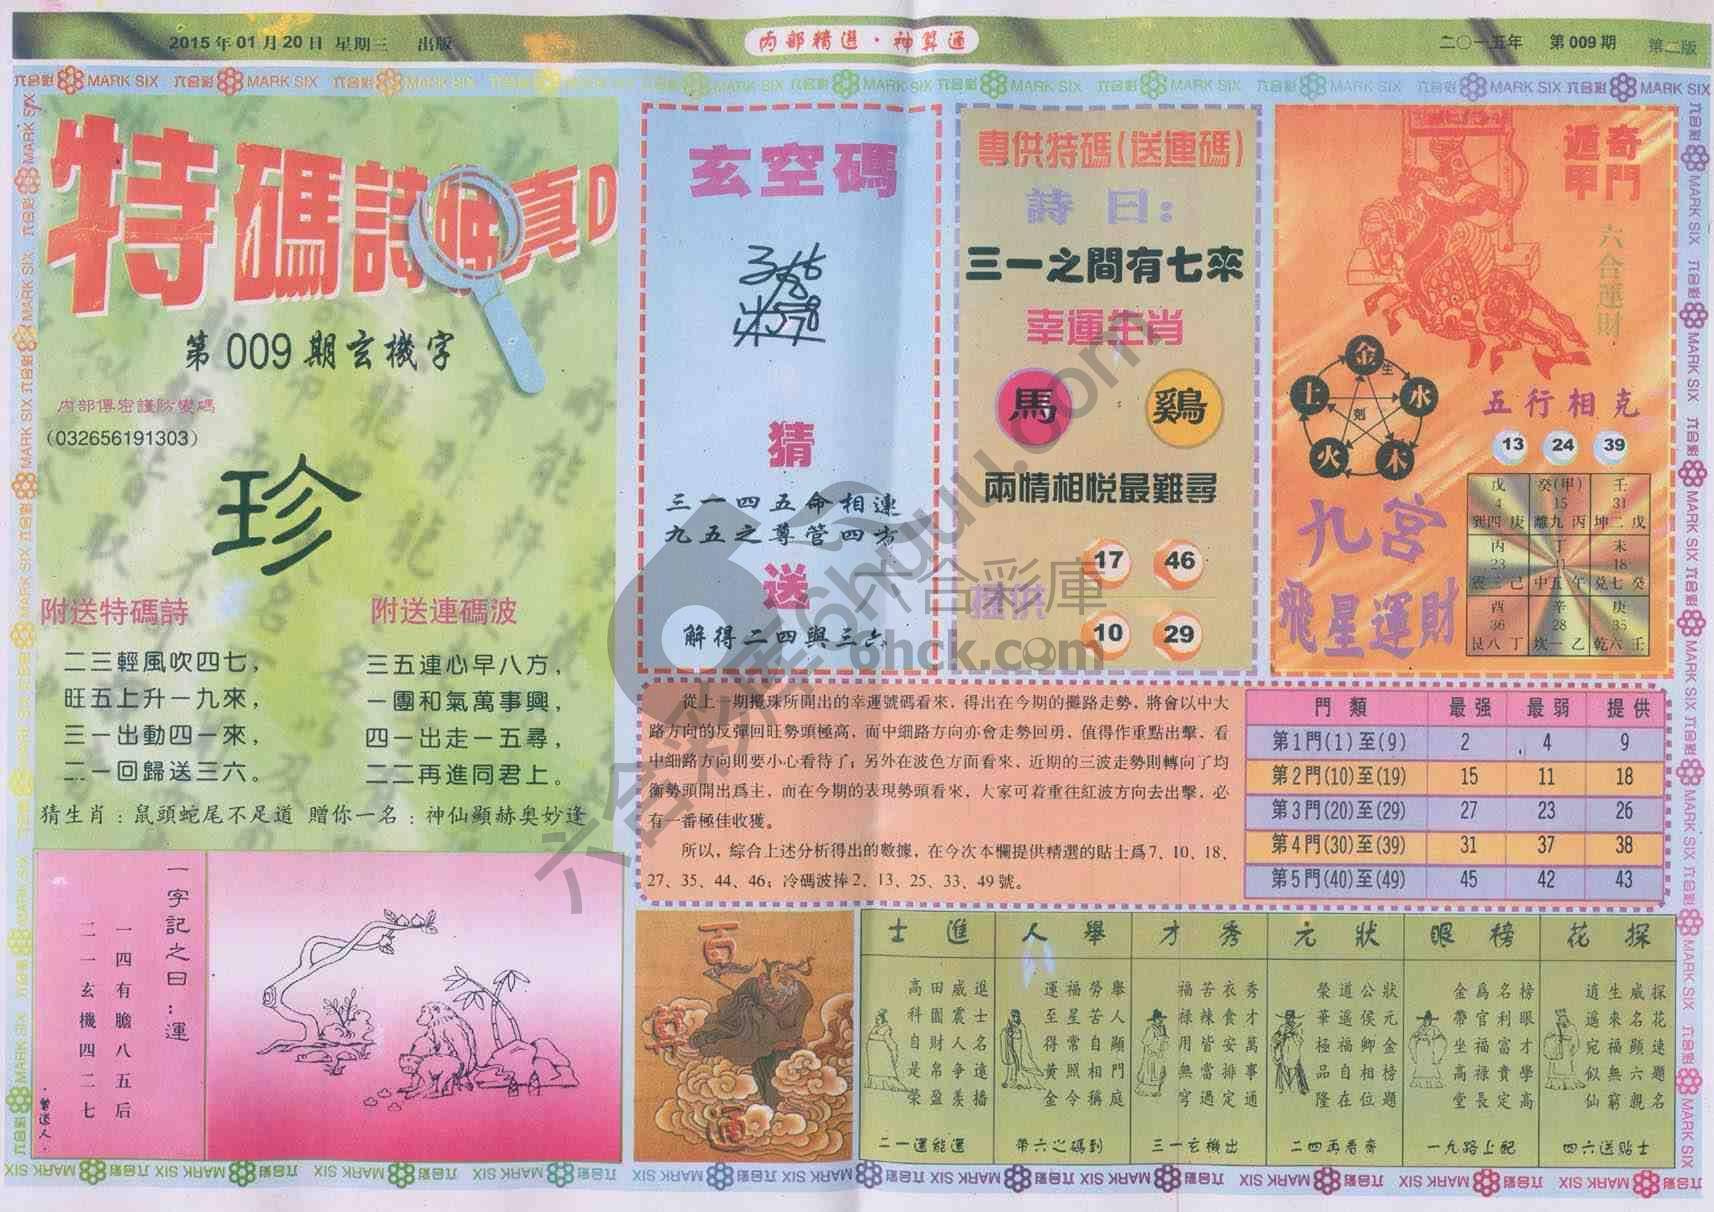 2015年01月20日 星期三 出版
内部精選·神算通
二〇一五年 第009期 第二版
六合彩 MARK SIX
特碼詩
真D
第009期玄機字
内部傳密護防變碼
(032656191303)
珍
附送特碼詩
二三輕風吹四七,
旺五上升一九來,
三一出動四一來,
二一回歸送三六。
附送連碼波
三五連心早八方,
一團和氣萬事興,
四一出走一五尋,
二二再進同君上。
猜生肖:鼠頭蛇尾不足道 贈你一名:神仙顯赫奥妙逢
一字記之曰:運
一四有膽八五后
二一玄機四二七
曾送人
玄空碼
猜
三一四五命相連
九五之尊管四方
送
解得二四與三六
專供特碼(送連碼)
詩曰:
三一之間有七來
幸運生肖
馬 鷄
兩情相悦最難尋
提供
17 46
10 29
奇門遁甲
六合運財
金 水 木 火 土
生
剋
五行相克
13 24 39
九宮
飛星運財
戊 癸(甲) 壬
4 15 31
巽四 庚 離九 丙 坤二 戊
丙 丁 未
23 41 18
震三 己 中五 午 兑七 癸
酉 辛 庚
36 28 35
艮八 丁 坎一 乙 乾六 壬
從上一期攪珠所開出的幸運號碼看來,得出在今期的攤路走勢,將會以中大
路方向的反彈回旺勢頭極高,而中細路方向亦會走勢回勇,值得作重點出擊,看
中細路方向則要小心看待了;另外在波色方面看來,近期的三波走勢則轉向了均
衡勢頭開出爲主,而在今期的表現勢頭看來,大家可着重往紅波方向去出擊,必
有一番極佳收獲。
所以,綜合上述分析得出的數據,在今次本欄提供精選的貼士爲7、10、18、
27、35、44、46;冷碼波捧2、13、25、33、49號。
門類 最强 最弱 提供
第1門(1)至(9) 2 4 9
第2門(10)至(19) 15 11 18
第3門(20)至(29) 27 23 26
第4門(30)至(39) 31 37 38
第5門(40)至(49) 45 42 43
探花
探花連題名
威名顯六親
生來福無窮
逍遥宛似仙
四六送貼士
榜眼
榜眼才學高
名利富貴定
爲官福禄長
金帶坐高堂
一九路上配
狀元
狀元金榜題
公侯卿相位
道遥福自在
榮華極品隆
二四再看齊
秀才
秀才萬事通
衣食安排定
苦辣皆當過
福禄用無窮
三一玄機出
舉人
舉人顯門庭
勞苦自相稱
福星常照令
運至得黄金
帶六之碼到
進士
進士名遠播
威震人争羡
田園財帛盈
高科自是榮
二一運能運
六合彩庫
6hck.com